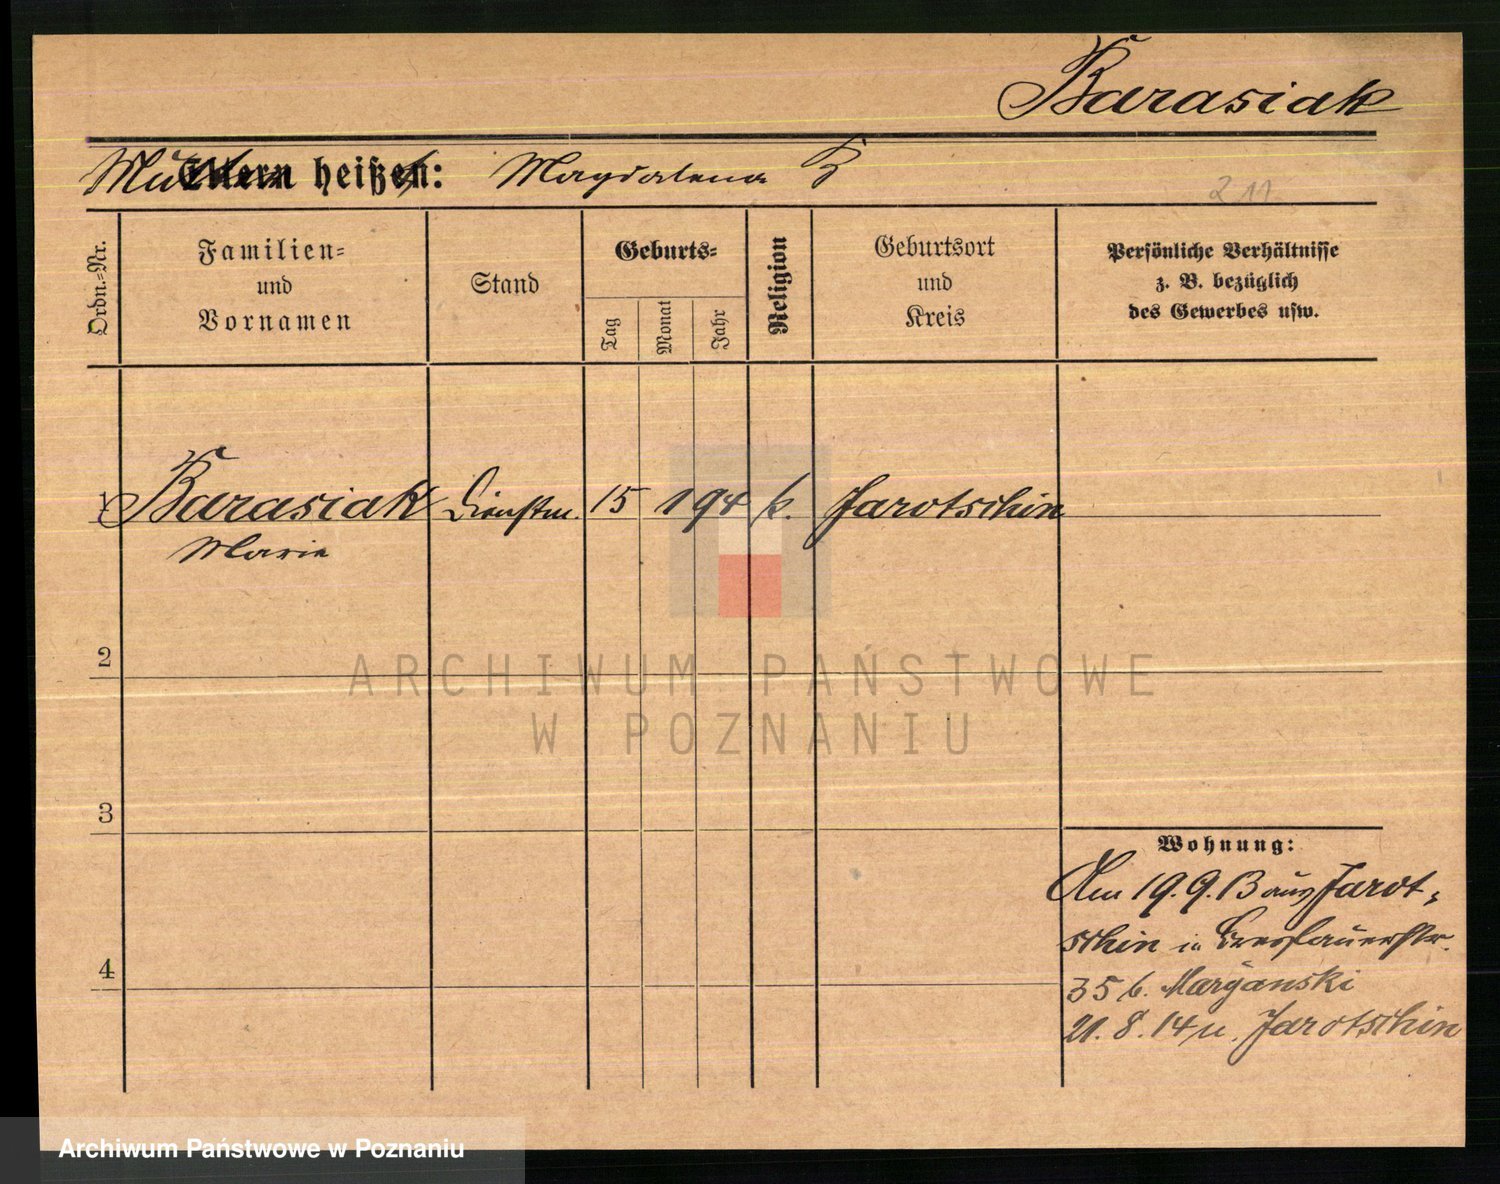 Barasiak
Mutter heißt: Magdalena B
211
Ordn.-Nr.
Familien-
und
Vornamen
Stand
Geburts-
Tag
Monat
Jahr
Religion
Geburtsort
und
Kreis
Persönliche Verhältnisse
z. B. bezüglich
des Gewerbes usw.
1 Barasiak Dienstm. 15 1 94 k. Jarotschin
Marie
2
3
4
Wohnung:
Am 19.9.13 aus Jarot-
schin in Breslauerstr.
35 b. Maryanski
21.8.14 n. Jarotschin
ARCHIWUM PAŃSTWOWE
W POZNANIU
Archiwum Państwowe w Poznaniu